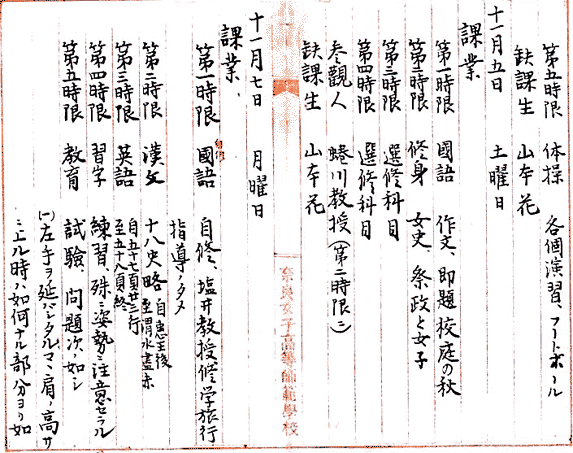 第五時限 体操 各個演習、フートボール
欠課生 山本花
十一月五日 土曜日
課業
第一時限 國語 作文、即題 校庭の秋
第二時限 修身 女史、祭政と女子
第三時限 選修科目
第四時限 選修科目
参觀人 蜷川教授(第二時限ニ)
欠課生 山本花
奈良女子高等師範學校
十一月七日 月曜日
課業、
第一時限 國語 自修、塩井教授修学旅行
指導ノタメ
第二時限 漢文 十八史略 自恵王後至渭水盡赤
第三時限 英語 自五十七頁廿三行至五十八頁終
第四時限 習字 練習、殊ニ姿勢ニ注意セラル
第五時限 教育 試験、問題次ノ如シ
(一)左手ヲ延バシタルマヽ肩ノ高サ
ニ上ル時ハ如何ナル部分ヨリ如